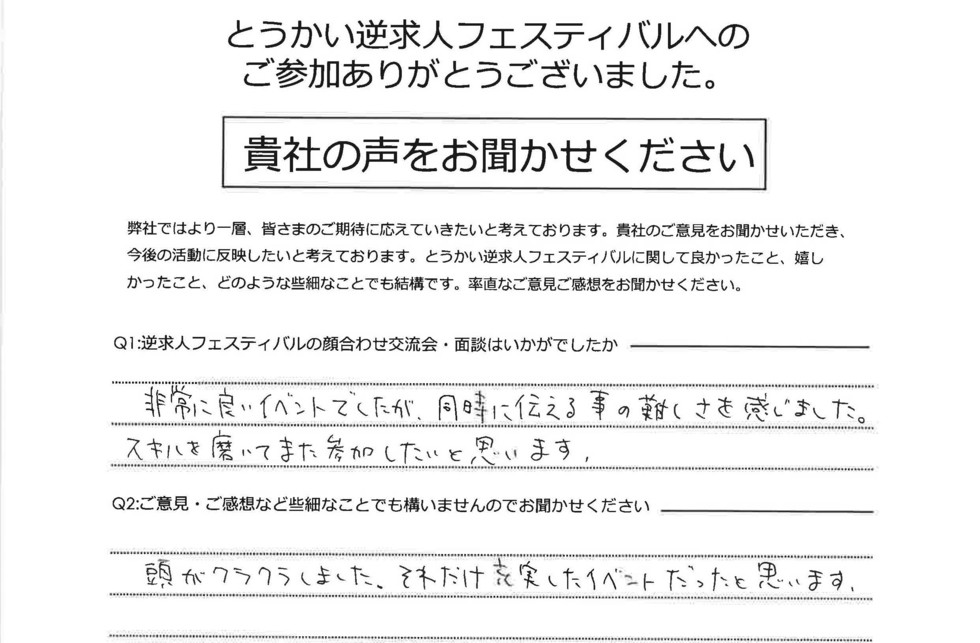 とうかい逆求人フェスティバルへの
ご参加ありがとうございました。
貴社の声をお聞かせください
弊社ではより一層、皆さまのご期待に応えていきたいと考えております。貴社のご意見をお聞かせいただき、
今後の活動に反映したいと考えております。とうかい逆求人フェスティバルに関して良かったこと、嬉し
かったこと、どのような些細なことでも結構です。率直なご意見ご感想をお聞かせください。
Q1:逆求人フェスティバルの顔合わせ交流会・面談はいかがでしたか
非常に良いイベントでしたが、同時に伝える事の難しさを感じました。
スキルを磨いてまた参加したいと思います.
Q2:ご意見・ご感想など些細なことでも構いませんのでお聞かせください
頭がクラクラしました、それだけ充実したイベントだったと思います.